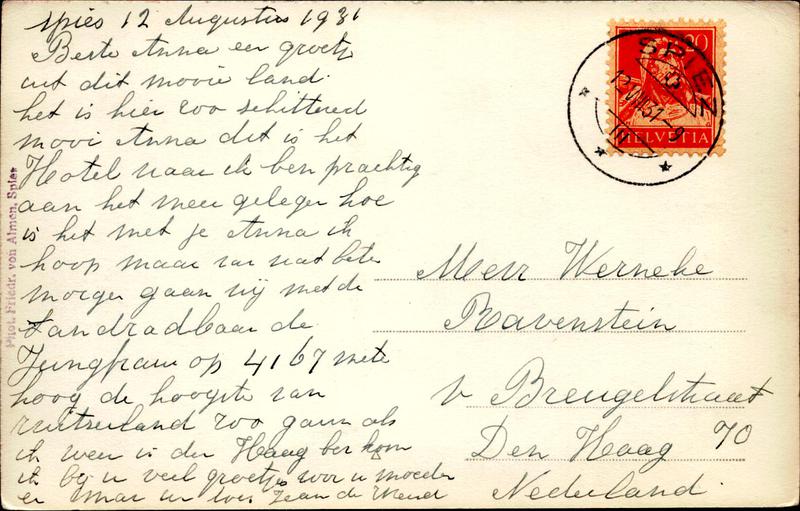 spies 12 Augustus 1931
Beste Anna een groetje
uit dit mooie land.
het is hier zoo schitterend
mooi Anna dit is het
Hotel waar ik ben prachtig
aan het meer gelegen hoe
is het met je Anna ik
hoop maar van wat beter
morgen gaan wij met de
tandradbaan de
Jungfrau op 4167 mete
hoog de hoogste van
zwitserland zoo gauw als
ik weer in den Haag ben kom
ik bij u veel groetjes voor u moeder
en
Phot. Friedr. von Almen, Spiez
20
HELVETIA
SPIEZ
12.VIII.31-9
Mevr Werneke
Ravenstein
v Breugelstraat
70
Den Haag
Nederland.